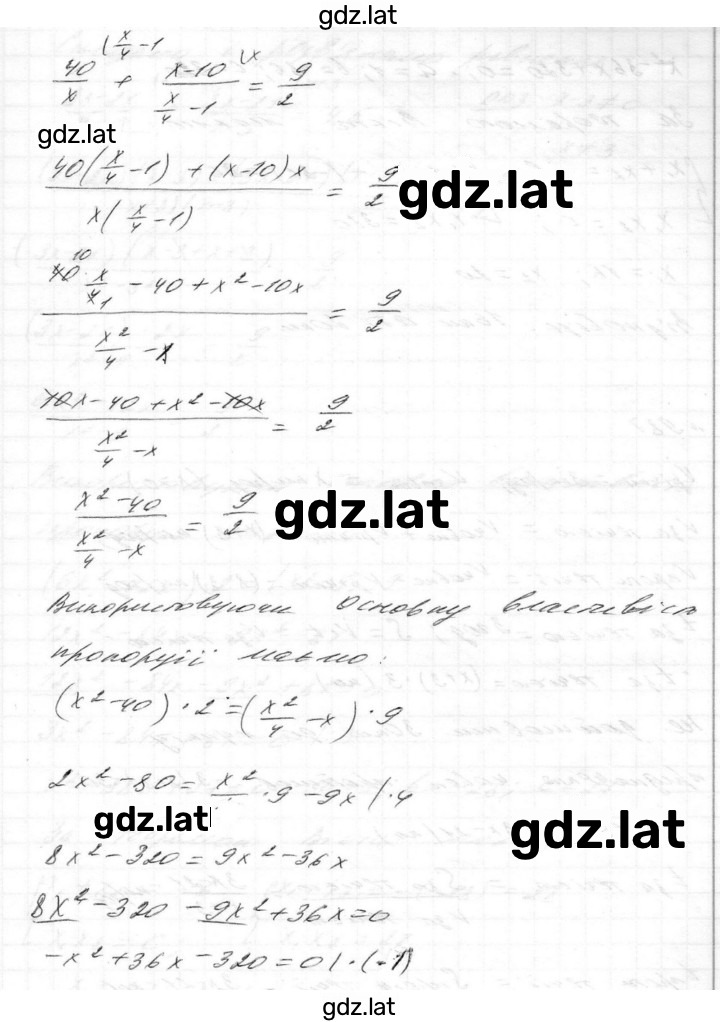 gdz.lat
(x/4 - 1    (x
40/x + (x-10)/(x/4 - 1) = 9/2
gdz.lat
(40(x/4 - 1) + (x-10)x)/(x(x/4 - 1)) = 9/2
gdz.lat
10
(40 · x/4 1 - 40 + x² - 10x)/(x²/4 - x) = 9/2
(10x - 40 + x² - 10x)/(x²/4 - x) = 9/2
(x² - 40)/(x²/4 - x) = 9/2
gdz.lat
Використовуючи основну властивість
пропорції маємо:
(x² - 40) · 2 = (x²/4 - x) · 9
2x² - 80 = x²/ · 9 - 9x | · 4
gdz.lat
gdz.lat
8x² - 320 = 9x² - 36x
8x² - 320 - 9x² + 36x = 0
-x² + 36x - 320 = 0 | · (-1)
gdz.lat